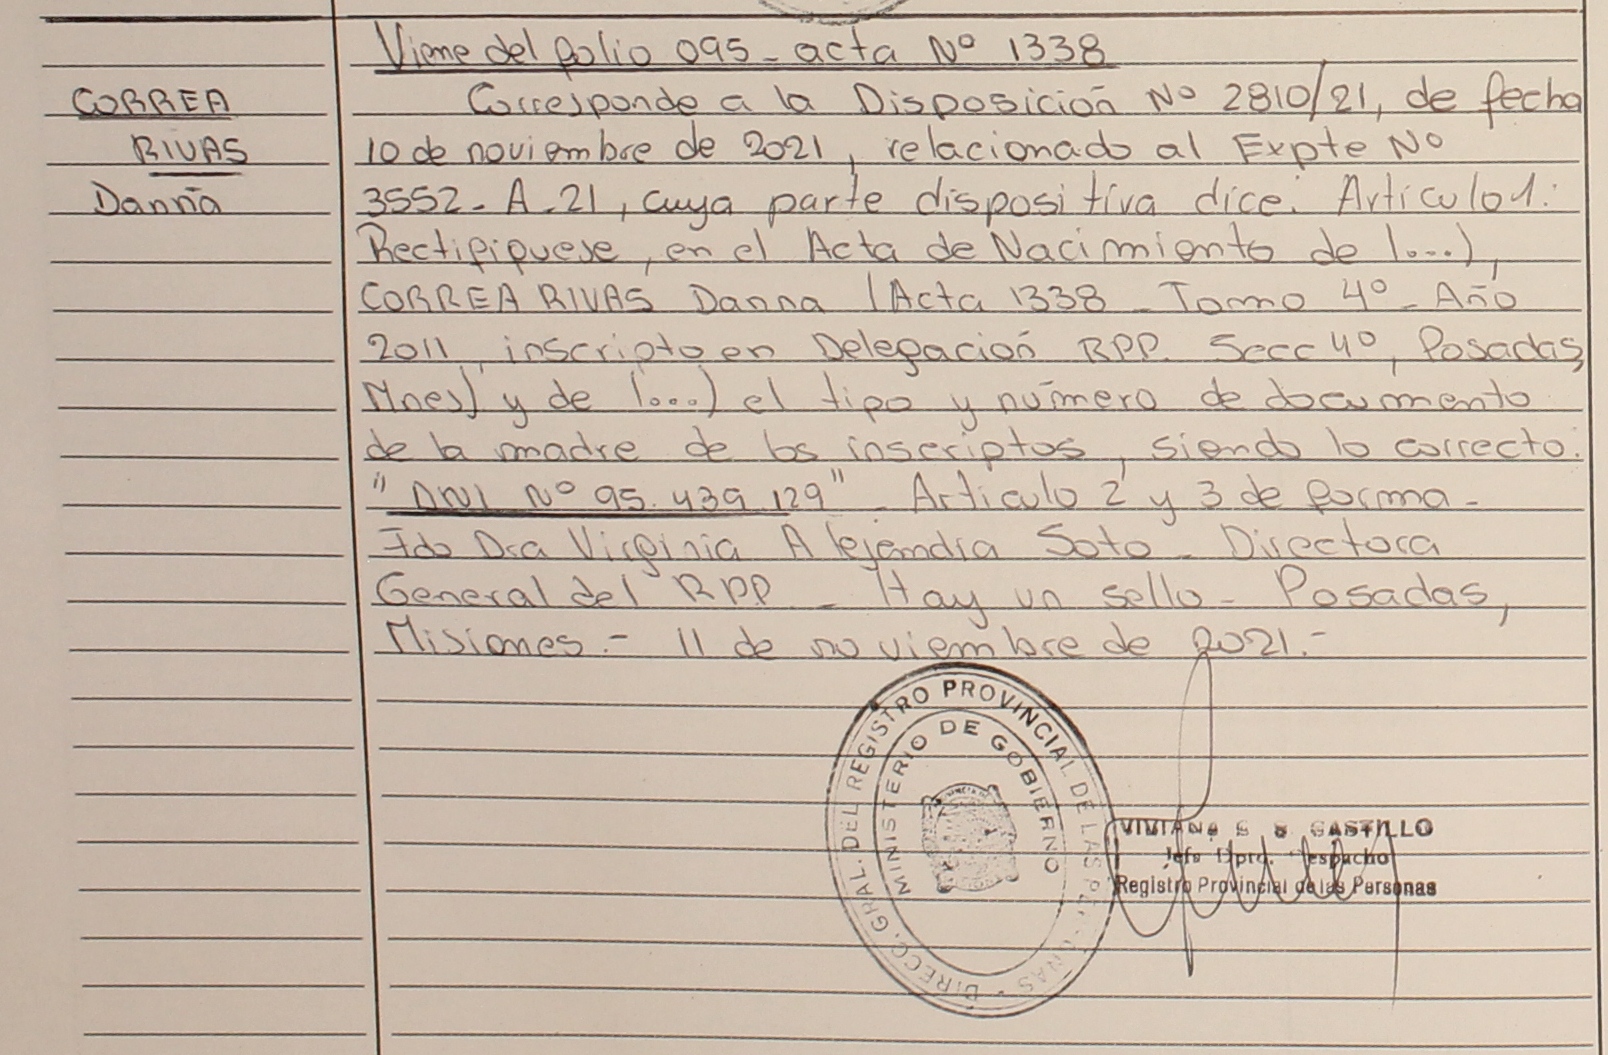 Viene del folio 095 - acta Nº 1338
CORREA
RIVAS
Danna
Corresponde a la Disposición Nº 2810/21, de fecha
10 de noviembre de 2021, relacionado al Expte Nº
3552 - A - 21, cuya parte dispositiva dice: Artículo 1:
Rectifiquese, en el Acta de Nacimiento de (...),
CORREA RIVAS Danna (Acta 1338 - Tomo 4º - Año
2011, inscripto en Delegación RPP. Secc 4º, Posadas,
Mnes) y de (...) el tipo y número de documento
de la madre de los inscriptos, siendo lo correcto:
"DNI Nº 95.439.129" - Artículo 2 y 3 de forma -
Fdo Dra Virginia Alejandra Soto - Directora
General del RPP - Hay un sello - Posadas,
Misiones.- 11 de noviembre de 2021.-
DIRECC. GRAL. DEL REGISTRO PROVINCIAL DE LAS PERSONAS
MINISTERIO DE GOBIERNO
VIVIANA CASTILLO
Jefe Dpto. Despacho
Registro Provincial de las Personas